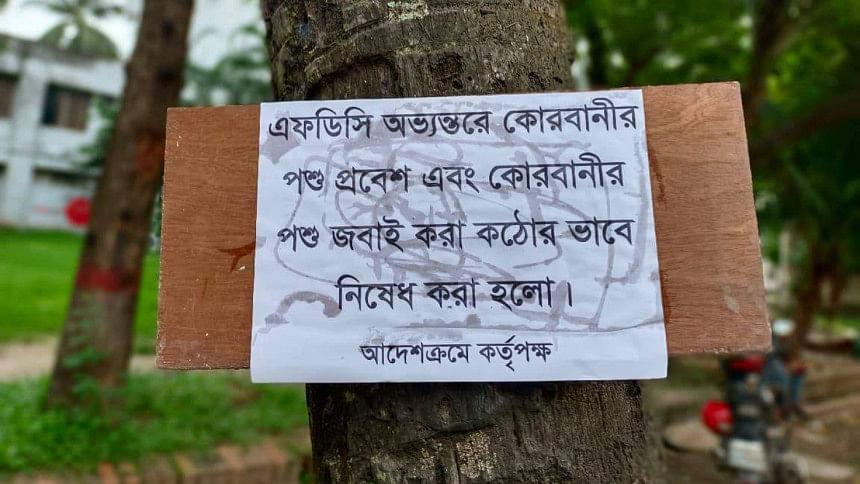 এফডিসি অভ্যন্তরে কোরবানীর
পশু প্রবেশ এবং কোরবানীর
পশু জবাই করা কঠোর ভাবে
নিষেধ করা হলো।
আদেশক্রমে কর্তৃপক্ষ